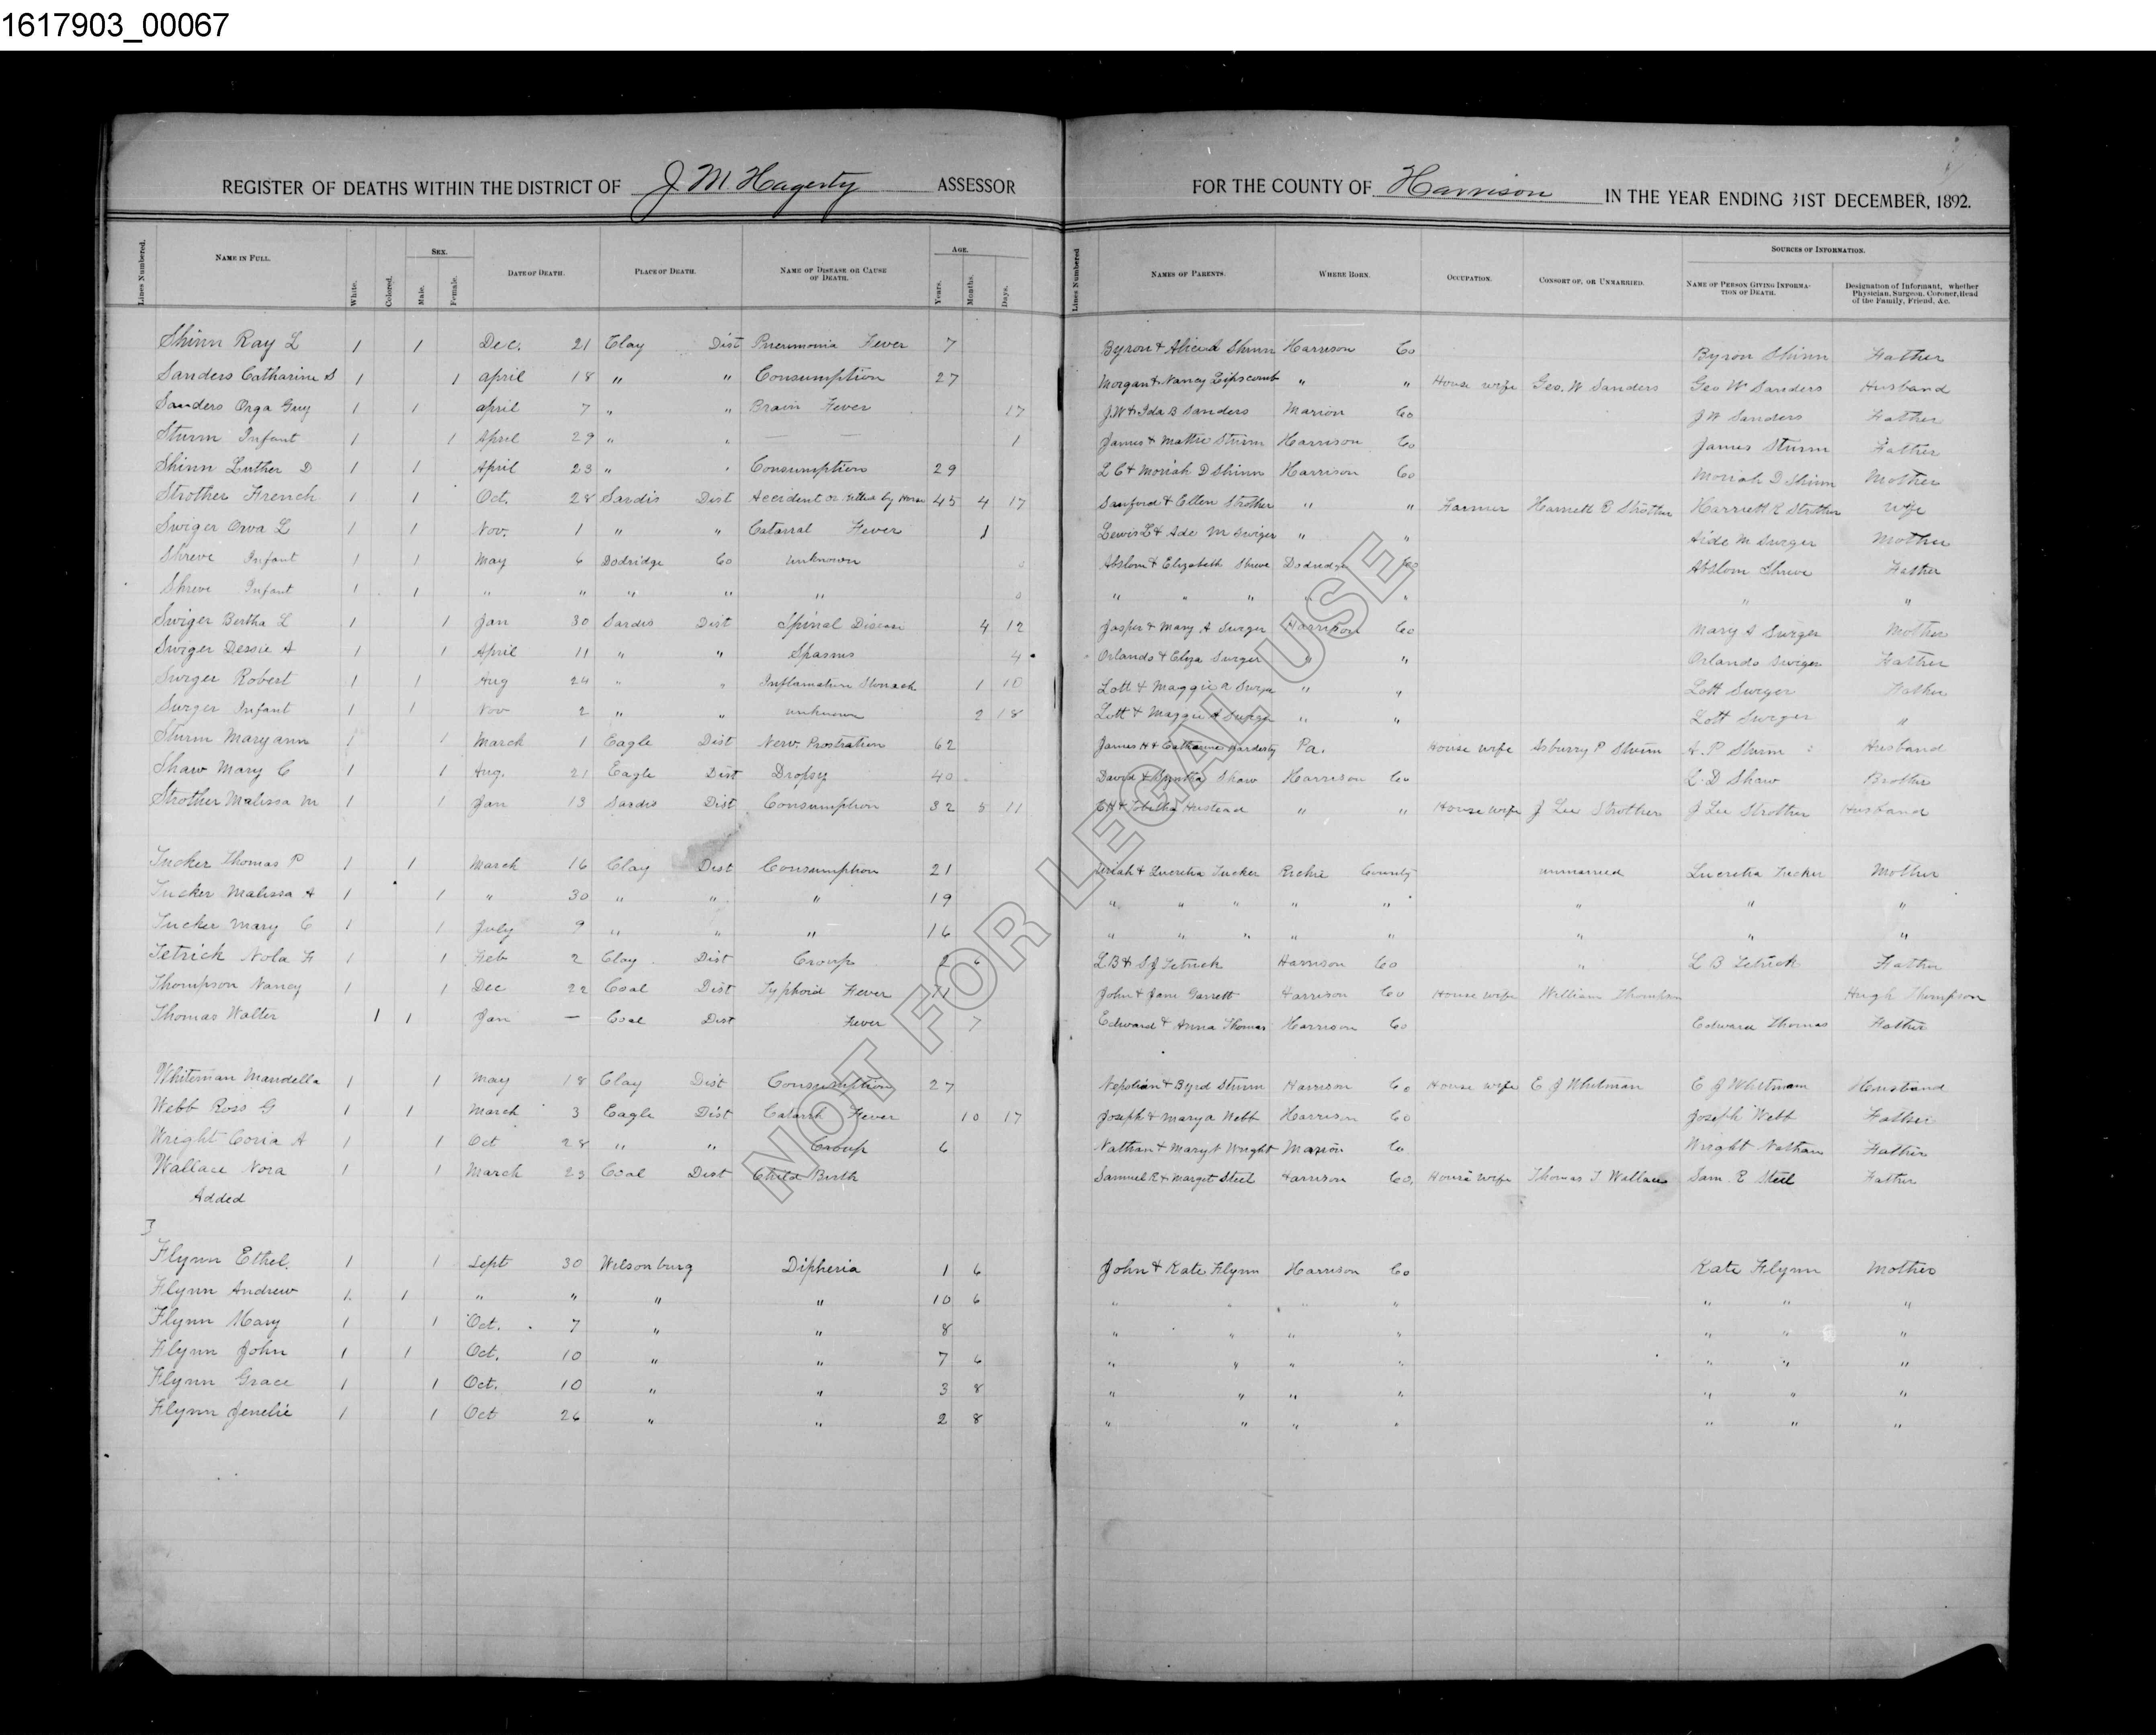 1617903_00067
REGISTER OF DEATHS WITHIN THE DISTRICT OF J M. Hagerty ASSESSOR FOR THE COUNTY OF Harrison IN THE YEAR ENDING 31ST DECEMBER, 1892.
Lines Numbered. NAME IN FULL. White. Colored. SEX. Male. Female. DATE OF DEATH. PLACE OF DEATH. NAME OF DISEASE OR CAUSE OF DEATH. AGE. Years. Months. Days. Lines Numbered NAMES OF PARENTS. WHERE BORN. OCCUPATION. CONSORT OF, OR UNMARRIED. SOURCES OF INFORMATION. NAME OF PERSON GIVING INFORMATION OF DEATH. Designation of Informant, whether Physician, Surgeon, Coroner, Head of the Family, Friend, &c.
Shinn Ray L 1 1 Dec. 21 Clay Dist Pneumonia Fever 7 Byron & Shinn Harrison Co Byron Shinn Father
Sanders Catharine S 1 1 april 18 " " Consumption 27 Morgan & Nancy Lipscomb " " House wife Geo. W Sanders Geo W Sanders Husband
Sanders Orga Guy 1 1 april 7 " " Brain Fever 17 J.W & Ida B Sanders Marion Co J W Sanders Father
Sturm Infant 1 1 April 29 " " — — 1 James & Mattie Sturm Harrison Co James Sturm Father
Shinn Luther D 1 1 April 23 " " Consumption 29 L C & Moriah D Shinn Harrison Co Moriah D Shinn Mother
Strother French 1 1 Oct. 28 Sardis Dist Accident or killed by Horse 45 4 17 Sanford & Ellen Strother " " Farmer Strother Strother Wife
Swiger Orva L 1 1 Nov. 1 " " Catarral Fever 1 Lewis L & Ade M Swiger " " Aide M Swiger Mother
Shreve Infant 1 1 May 6 Dodridge Co unknown 0 Abslom & Elizabeth Shreve Dodridge Co Abslom Shreve Father
Shreve Infant 1 1 " " " " " 0 " " " " " " "
Swiger Bertha L 1 1 Jan 30 Sardis Dist Spinal Disease 4 12 Jasper & Mary A Swiger Harrison Co Mary A Swiger Mother
Swiger Dessie A 1 1 April 11 " " Spasms 4 Orlando & Eliza Swiger " " Orlando Swiger Father
Swiger Robert 1 1 Aug 24 " " Inflamation Stomach 1 10 Lott & Maggie A Swiger " " Lott Swiger Father
Swiger Infant 1 1 Nov 2 " " unknown 2 18 Lott & Maggie A Swiger " " Lott Swiger "
Sturm Maryann 1 1 March 1 Eagle Dist Nerv. Prostration 62 James H & Catharine Pa. House wife Asburry P Sturm A. P Sturm Husband
Shaw Mary C 1 1 Aug. 21 Eagle Dist Dropsy 40 David & Shaw Harrison Co L. D Shaw Brother
Strother Malissa M 1 1 Jan 13 Sardis Dist Consumption 32 5 11 Hustead " " House wife J Lee Strother J Lee Strother Husband
Tucker Thomas P 1 1 March 16 Clay Dist Consumption 21 & Lucretia Tucker Richie County unmarried Lucretia Tucker Mother
Tucker Malissa A 1 1 " 30 " " " 19 " " " " " " " "
Tucker Mary C 1 1 July 9 " " " 16 " " " " " " " "
Tetrick Nola F 1 1 Feb 2 Clay Dist Croup 2 6 L B & S J Tetrick Harrison Co " L B Tetrick Father
Thompson Nancy 1 1 Dec 22 Coal Dist Typhoid Fever John & Jane Garrett Harrison Co House wife William Thompson Hugh Thompson
Thomas Walter 1 1 Jan — Coal Dist Fever 7 Edward & Anna Thomas Harrison Co Edward Thomas Father
Whiteman Mandella 1 1 May 18 Clay Dist Consumption 27 Nepolian & Byrd Sturm Harrison Co House wife E J Whitman E J Whitman Husband
Webb Ross G 1 1 March 3 Eagle Dist Catarrh Fever 10 17 Joseph & Mary A Webb Harrison Co Joseph Webb Father
Wright Coria A 1 1 Oct 28 " " Croup 6 Nathan & Mary Wright Marion Co Wright Nathan Father
Wallace Nora 1 1 March 23 Coal Dist Child Birth Samuel R & Marget Steel Harrison Co. House wife Thomas J Wallace Sam. R Steel Father
Added
Flynn Ethel. 1 1 Sept 30 Wilsonburg Diphería 1 6 John & Kate Flynn Harrison Co Kate Flynn Mother
Flynn Andrew 1 1 " " " " 10 6 " " " " " " "
Flynn Mary 1 1 Oct. 7 " " 8 " " " " " " "
Flynn John 1 1 Oct. 10 " " 7 6 " " " " " " "
Flynn Grace 1 1 Oct. 10 " " 3 8 " " " " " " "
Flynn Jenelie 1 1 Oct 26 " " 2 8 " " " " " " "
NOT FOR LEGAL USE